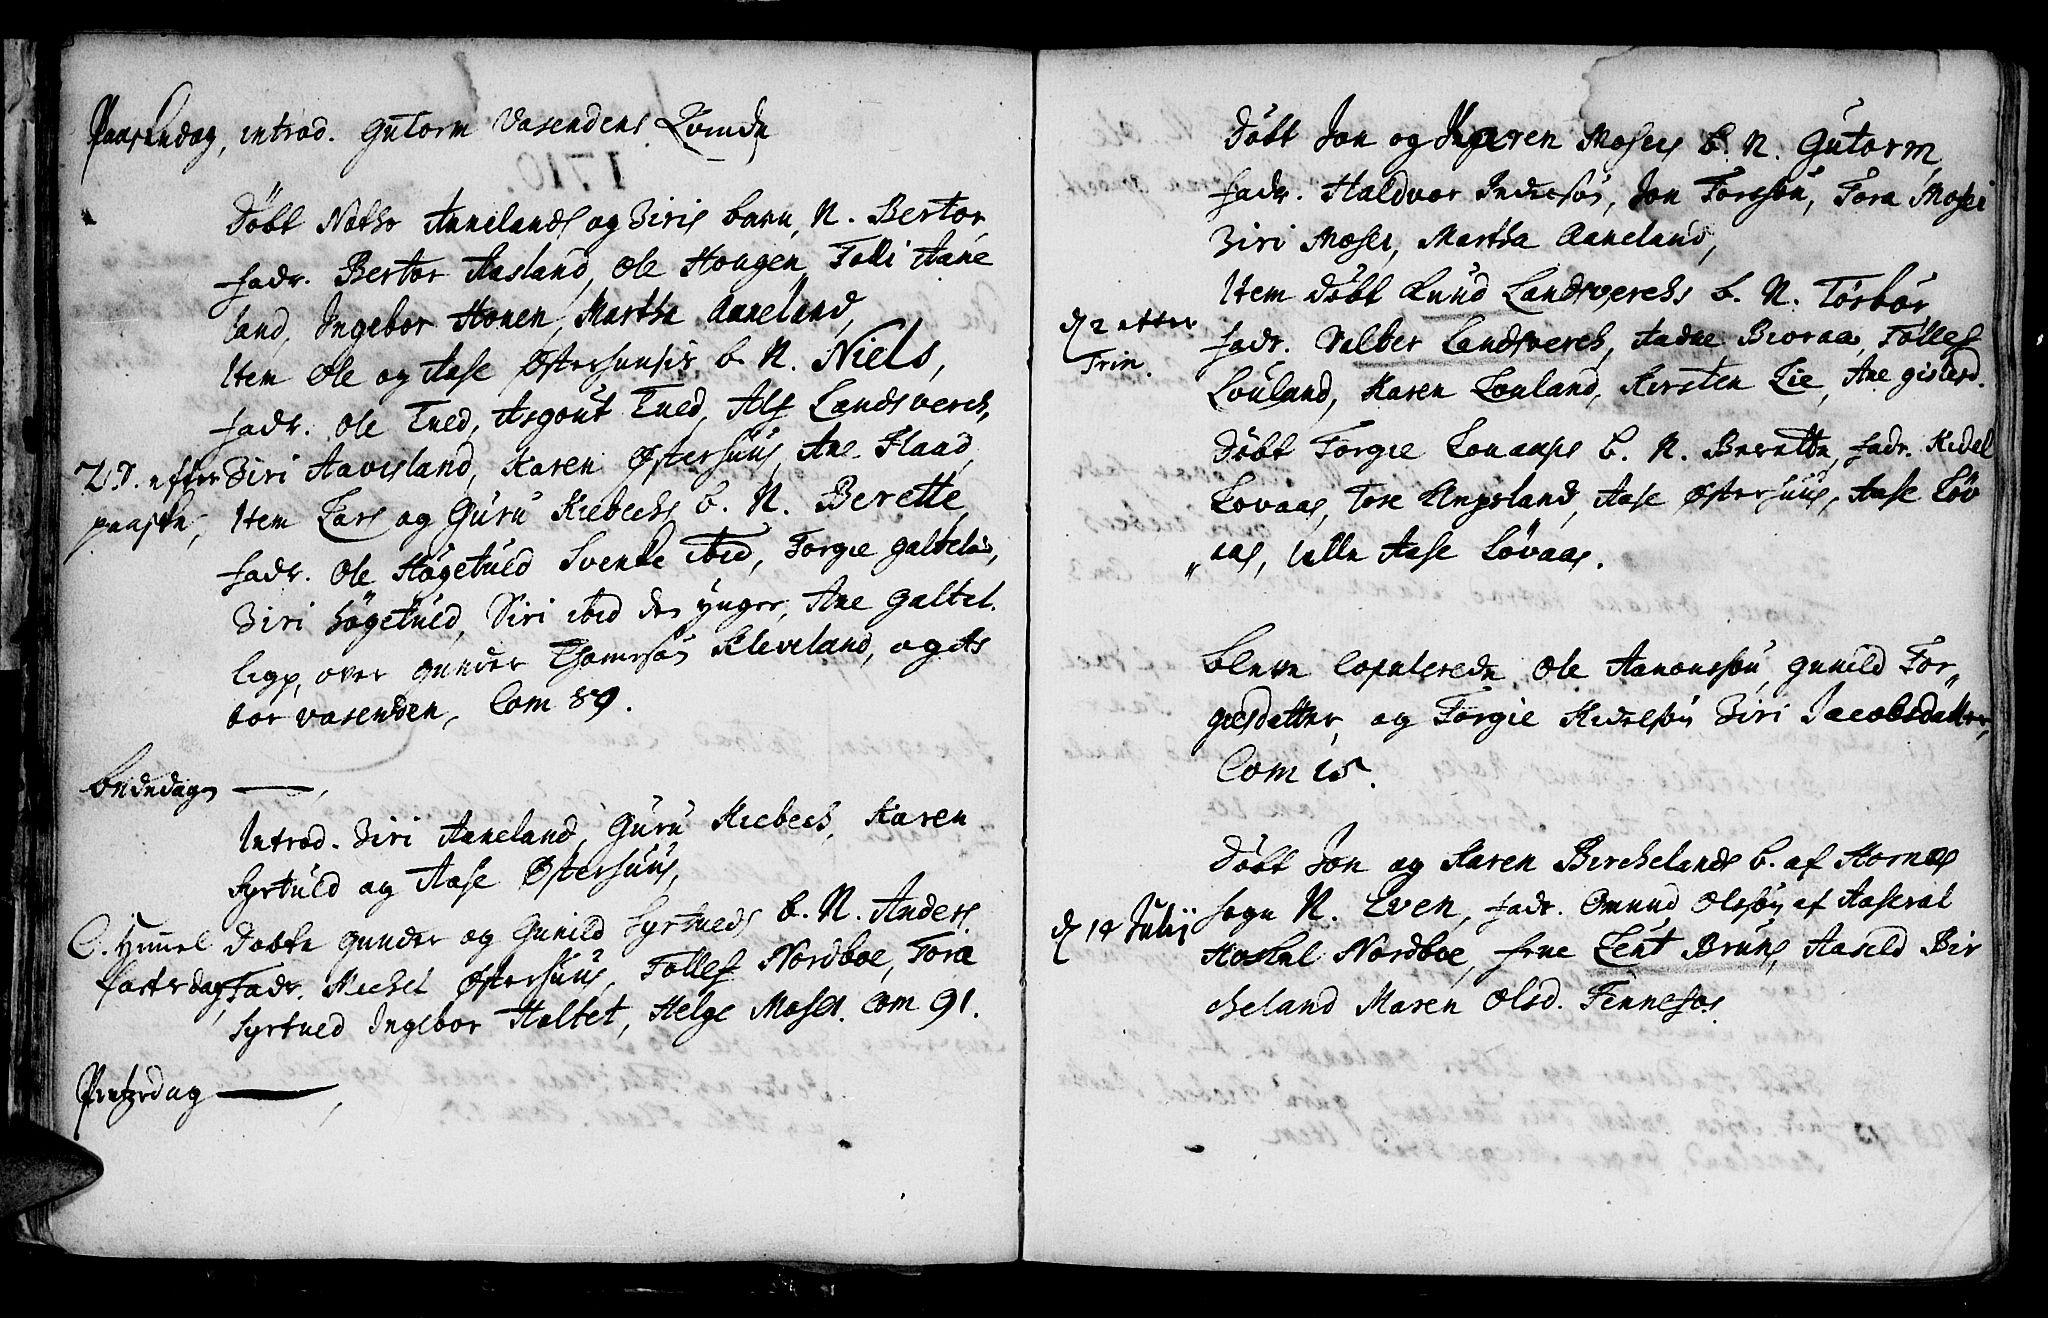 Paaskedag, introd. Gutorm Vasendens Quinde
1710.
Döbt Aanelands og Siris barn, N. Bertor,
fadr. Bertor Aasland, Ole Hougen, Tolli Aane
land, Ingebor Honen, Martha Aaneland,
Item Ole og Aase Østerhuusis b. N. Niels,
fadr. Ole Tued, Asgout Tued, Alf Landsverch,
Siri Aavesland, Karen Østerhuus, Ane Flaad,
2 D. efter
paaske,
Item Lars og Guru Kiebechs b. N. Berette,
fadr. Ole Högetued Svenke ibid, Torgie Galtelad,
Siri högetued, Siri ibid den ynger, Ane Galtel.
ligp. over Gunder Thomesøn Kleveland, og As
bor Vasenden, Com 89.
bededagen ——,
Introd. Siri Aaneland, Guru Kiebech, Karen
Syrtued og Aase Østerhuus,
C. Himmel
fartsdag,
Döbte Gunder og Gunild Syrtueds b. N. Anders
Fadr. Michel Østerhuus, Tollef Nordboe, Tora
Syrtued Ingebor Haltet, Helge Moser. Com 91.
Pintzedag ——,
Döbt Jon og Karen Mosers b. N. Gutorm,
fadr. Haldvor Indresøn, Jon Toresøn, Tora Moser
Siri Moser, Martha Aaneland,
d 2 etter
Trin.
Item döbt Knud Landsverchs b. N. Torbor,
fadr. Valber Landsverch, Aadne Bioraa, Tollef
Louland, Karen Louland, Kirsten Lie, Ane Gislesd.
Döbt Torgie Louaases b. N. Berette, fadr. Kidel
Lovaas, Tore Ungsland, Aase Østerhuus, Aase Löv
„aas, lille Aase Lövaas.
bleve Copulerede Ole Aanonsøn, Gunild Tor„
giesdatter, og Torgie Kidelsøn Siri Jacobsdatter,
Com 15.
Döbt Jon og Karen Birchelands b. af Hornes
d 14 Julij
sogn N. Even, fadr. Omund Olsøn af Aaseral
Nordboe, Lent Bruns, Aaseld Bir
cheland Maren Olsd. Fennefos.